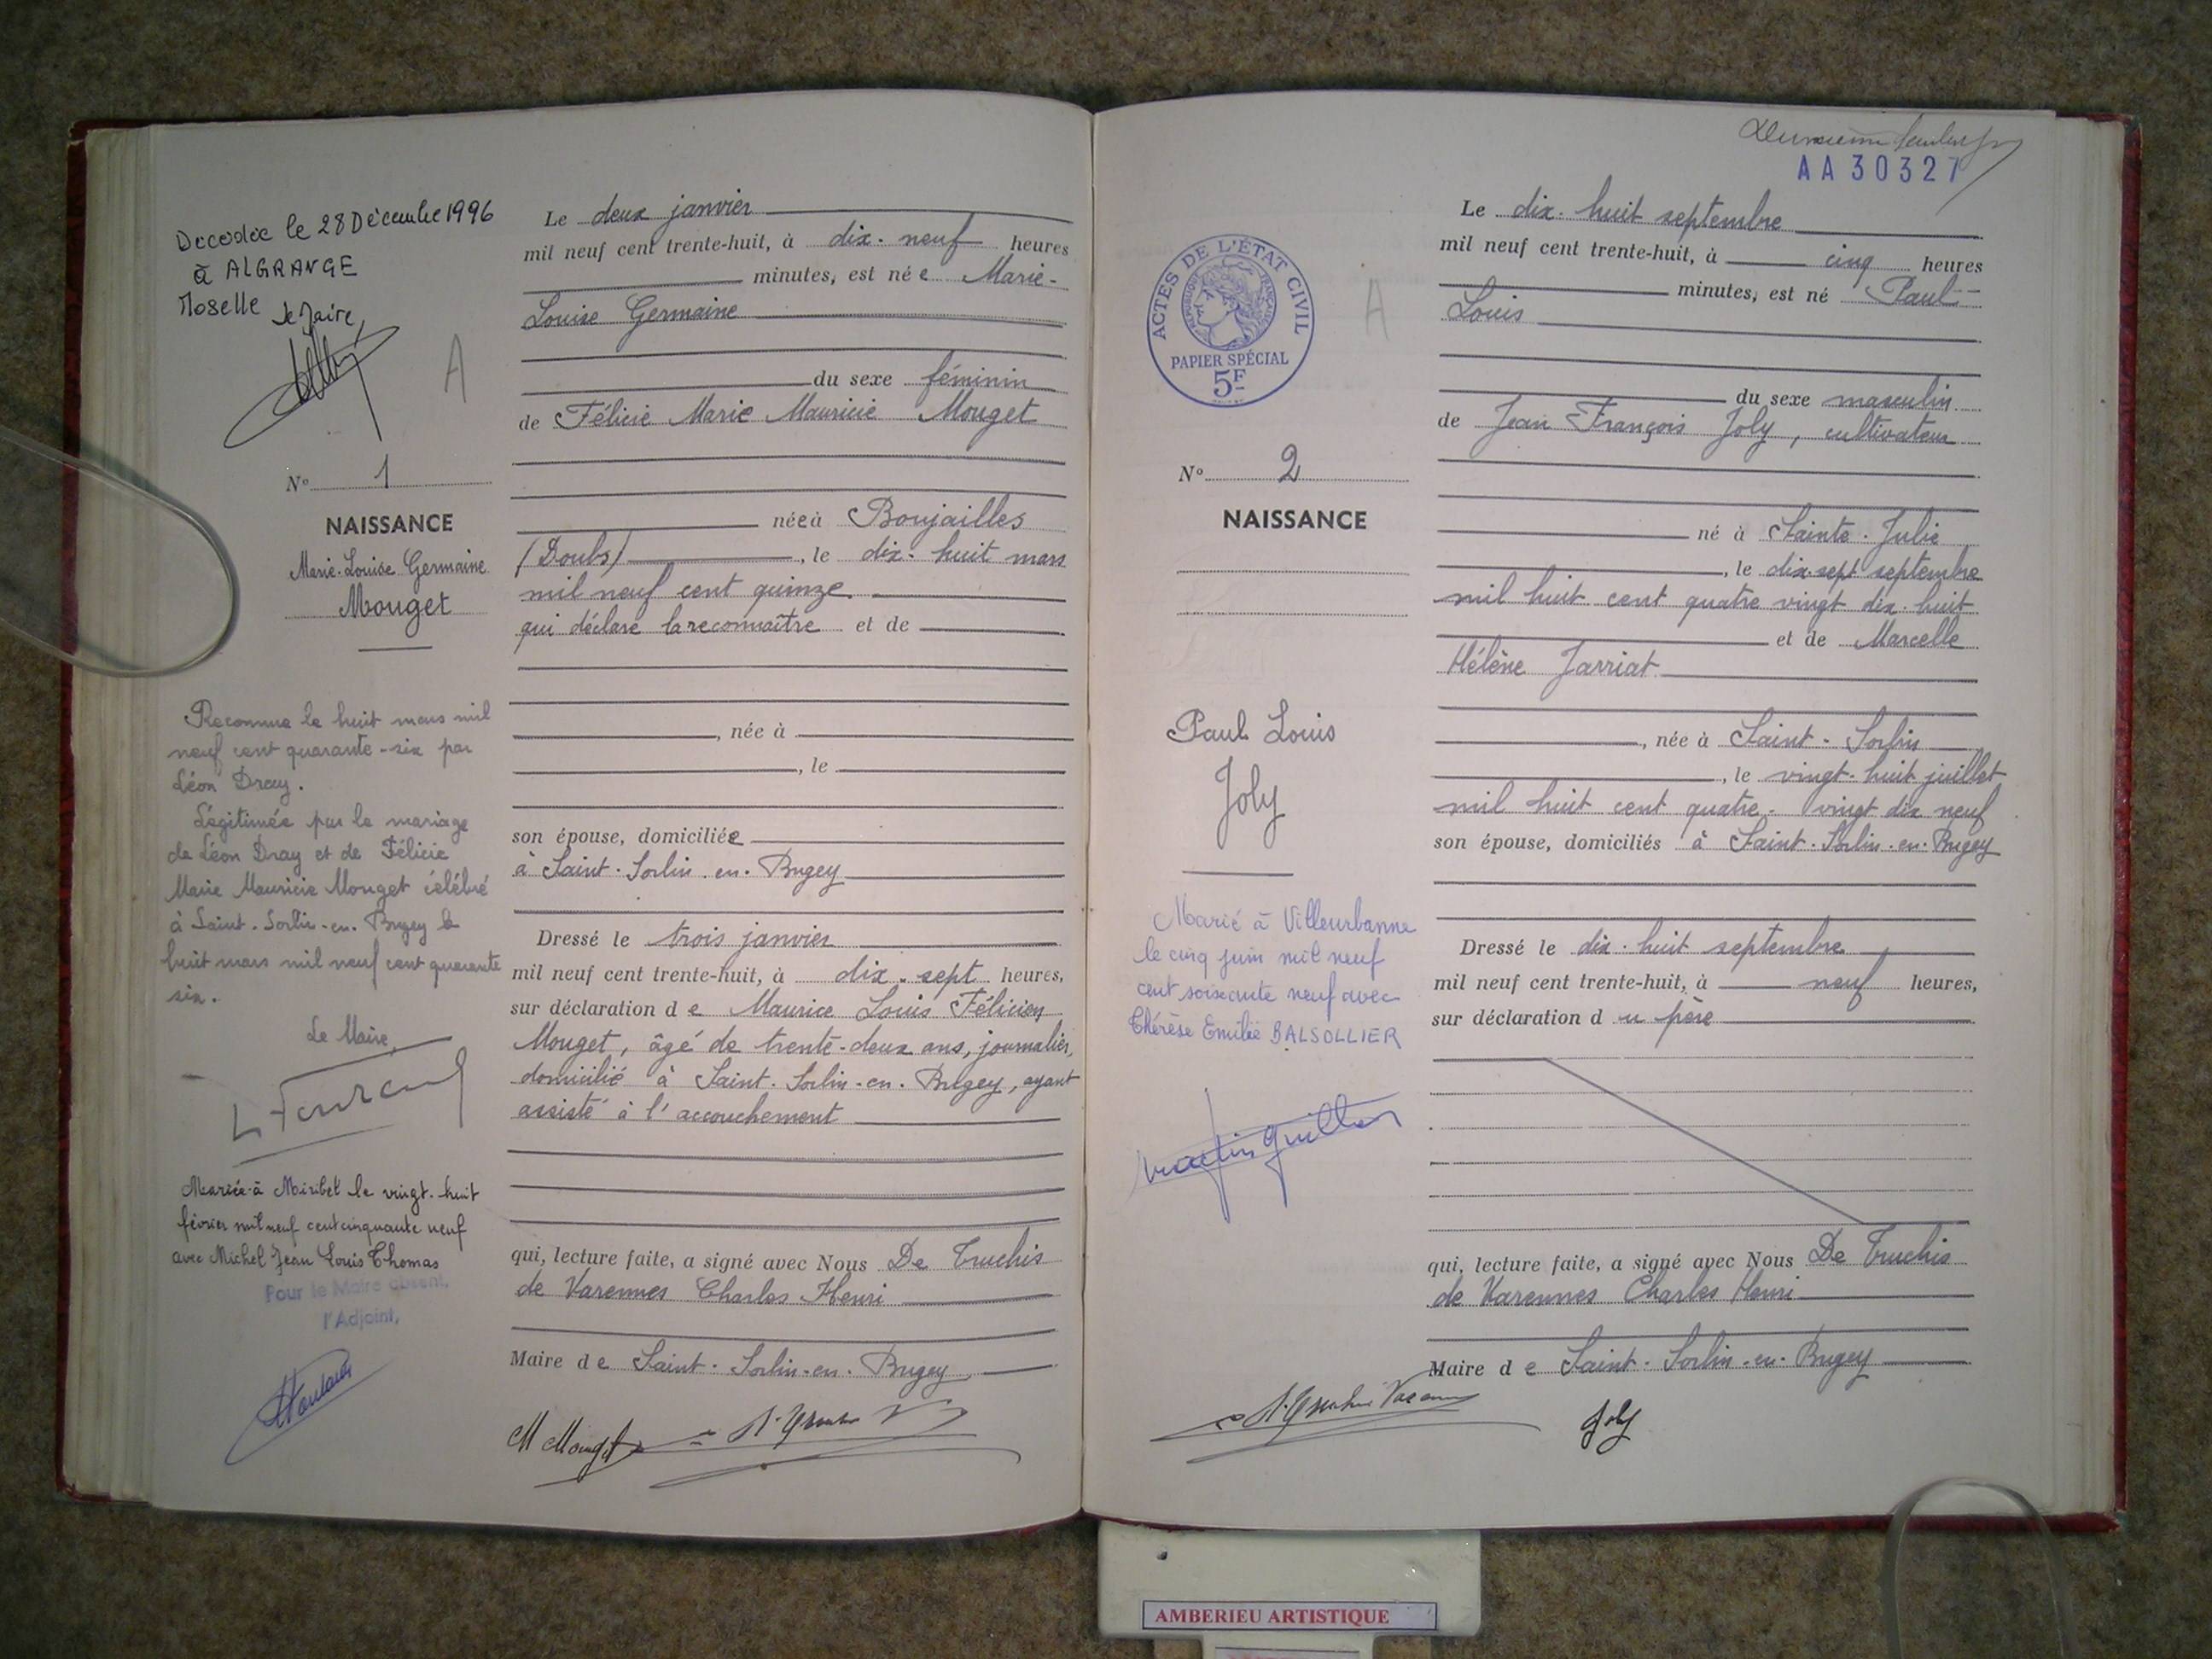 Decedée le 28 Décembre 1996
à ALGRANGE
Moselle le Maire,
A
N° 1
NAISSANCE
Marie-Louise Germaine
Mouget
Reconnue le huit mars mil
neuf cent quarante-six par
Léon Dray.
Légitimée par le mariage
de Léon Dray et de Félicie
Marie Mauricie Mouget célébré
à Saint-Sorlin-en-Bugey le
huit mars mil neuf cent quarante
six.
Le Maire,
Mariée à Miribel le vingt-huit
février mil neuf cent cinquante neuf
avec Michel Jean Louis Thomas
Pour le Maire absent,
l'Adjoint,
Le deux janvier
mil neuf cent trente-huit, à dix-neuf heures
minutes, est née Marie-
Louise Germaine
du sexe féminin
de Félicie Marie Mauricie Mouget
née à Boujailles
(Doubs), le dix-huit mars
mil neuf cent quinze
qui déclare la reconnaître et de
, née à
, le
son épouse, domiciliée
à Saint-Sorlin-en-Bugey
Dressé le trois janvier
mil neuf cent trente-huit, à dix-sept heures,
sur déclaration de Maurice Louis Félicien
Mouget, âgé de trente-deux ans, journalier,
domicilié à Saint-Sorlin-en-Bugey, ayant
assisté à l'accouchement
qui, lecture faite, a signé avec Nous De Truchis
de Varennes Charles Henri
Maire de Saint-Sorlin-en-Bugey
M Mouget
AA30327
ACTES DE L'ÉTAT CIVIL
RÉPUBLIQUE FRANÇAISE
PAPIER SPÉCIAL
5F
A
N° 2
NAISSANCE
Paul Louis
Joly
Marié à Villeurbanne
le cinq juin mil neuf
cent soixante neuf avec
Thérèse Emilie BALSOLLIER
Le dix-huit septembre
mil neuf cent trente-huit, à cinq heures
minutes, est né Paul-
Louis
du sexe masculin
de Jean François Joly, cultivateur
né à Sainte-Julie
, le dix-sept septembre
mil huit cent quatre vingt dix-huit
et de Marcelle
Hélène Jarriat
, née à Saint-Sorlin
, le vingt-huit juillet
mil huit cent quatre-vingt dix neuf
son épouse, domiciliés à Saint-Sorlin-en-Bugey
Dressé le dix-huit septembre
mil neuf cent trente-huit, à neuf heures,
sur déclaration du père
qui, lecture faite, a signé avec Nous De Truchis
de Varennes Charles Henri
Maire de Saint-Sorlin-en-Bugey
Joly
AMBERIEU ARTISTIQUE